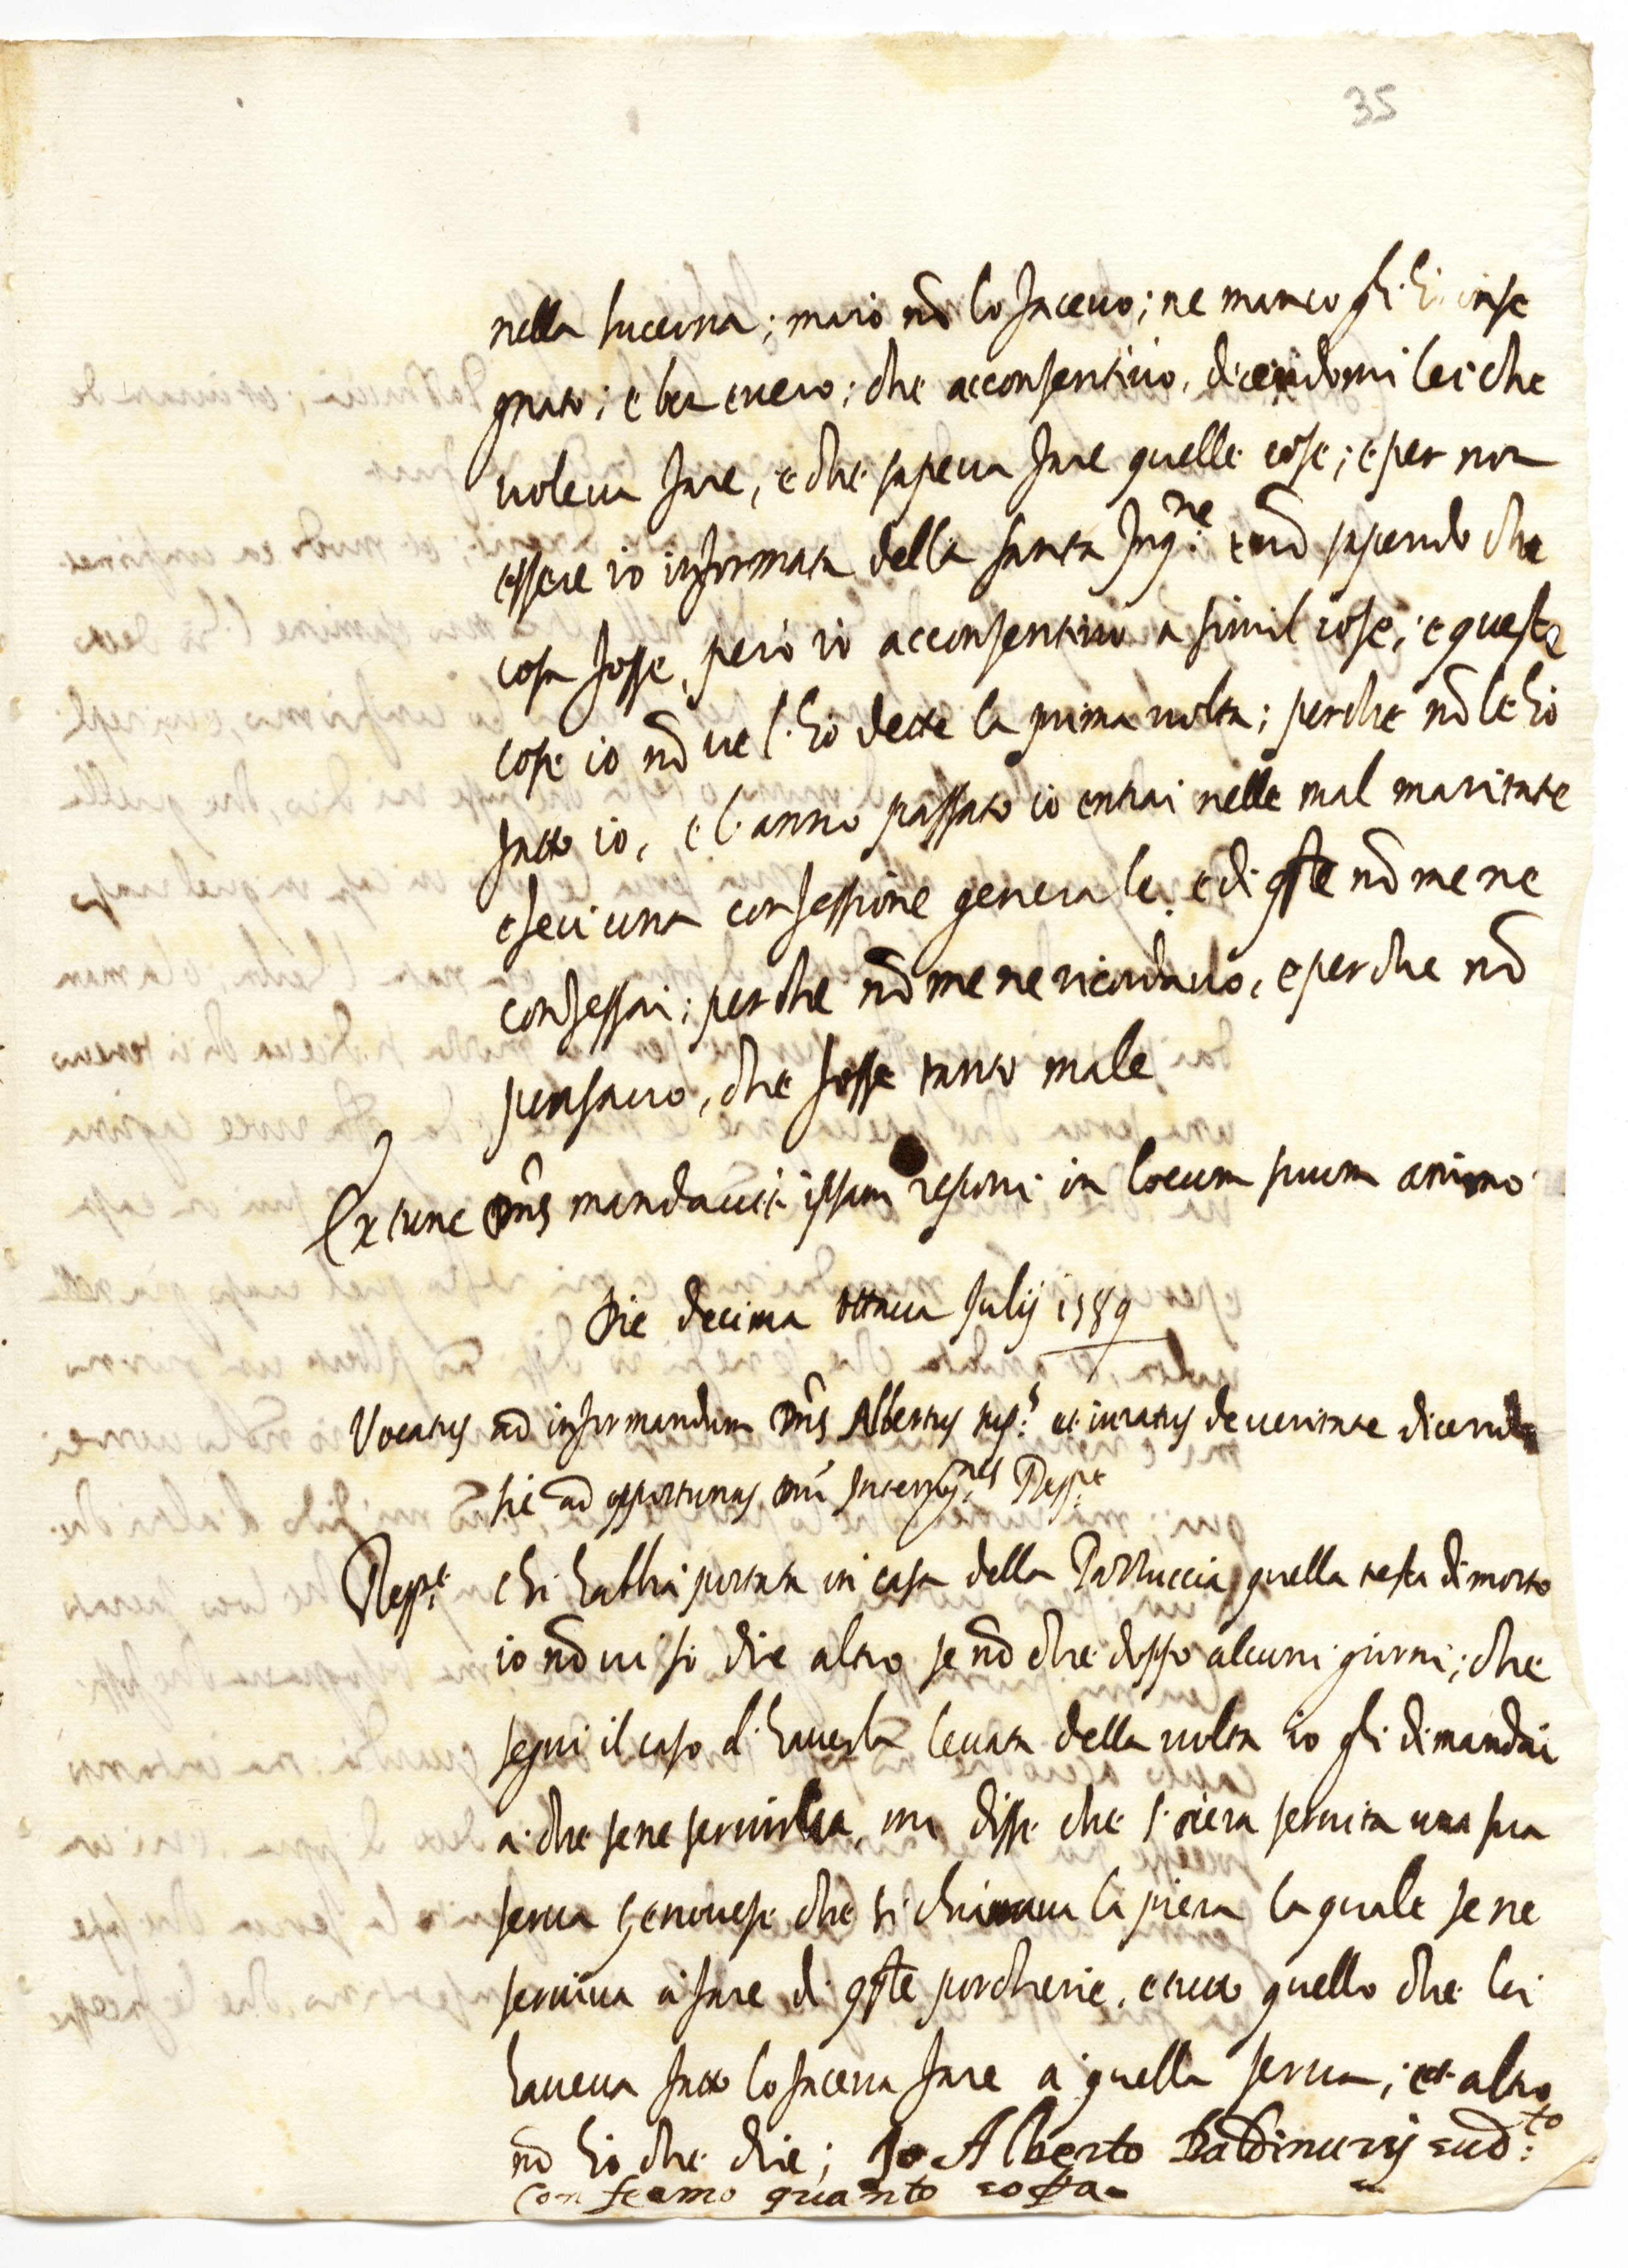 35
nella lucerna; ma io nō lo facevo; ne manco gli hò inse
gnato; e ben e vero; che acconsentivo, dicendomi lei che
voleva fare, e che sapeva fare quelle cose; e per non
essere io informata della santa Inq.ne e nō sapendo che
cosa fosse, però io acconsentivo a simil cose; e queste
cose io nō ve l'hò dette la prima volta; perche nō le hò
fatto io, e l'anno passato io entrai nelle mal maritate
e feci una confessione generale, e di qste nō me ne
confessai; perche nō me ne ricordavo, e perche nō
pensavo, che fosse tanto male
Ex tunc Dn̄s mandavit ipsam reponi in locum suum animo
Die decima ottava Julij 1589
Vocatus ad informandum Dn̄s Albertus sup.s et iuratus de veritate dicenda
sic ad opportunas Dn̄i Interrog.nes Resp.t
Resp.t chi habbia portata in casa della Padduccia quella testa di morto
io nō vi sò dire altro se nō che doppo alcuni giorni; che
seguì il caso d'haverla levata della volta io gli dimandai
a che se ne serviva, mi disse che s'era servita una sua
serva Genovese che si chiamava la piera la quale se ne
serviva à fare di qste porcherie, e tutto quello che lei
haveva fatto lo faceva fare a quella serva; et altro
nō hò che dire; Io Alberto Baldinucij sud.to
confermo quanto sopra